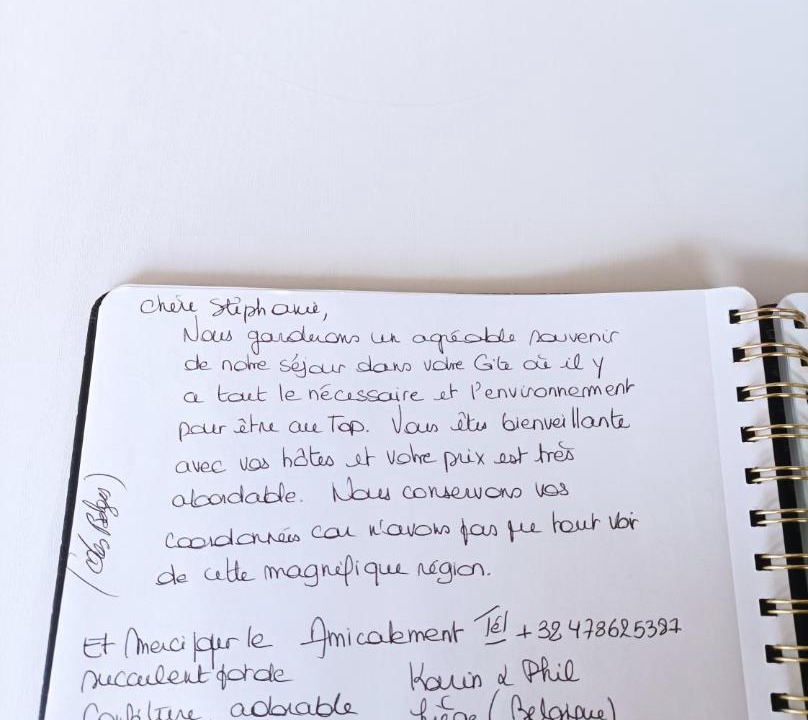 Chère Stéphanie,
Nous garderons un agréable souvenir
de notre séjour dans votre Gîte où il y
a tout le nécessaire et l'environnement
pour être au Top. Vous êtes bienveillante
avec vos hôtes et votre prix est très
abordable. Nous conservons vos
coordonnées car n'avons pas pu tout voir
de cette magnifique région.
(des Belges)
Et Merci pour le
succulent
Confiture adorable
Amicalement Tél +32 478625387
Karin & Phil
Liège (Belgique)